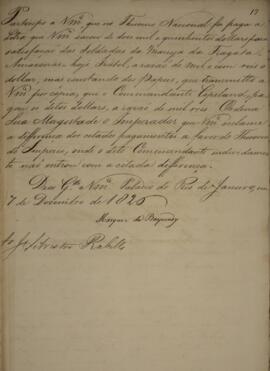 17
Participo a Vmce que no Thesouro Nacional foi paga a
Letra que Vmce sacou de dois mil e quinhentos dollars para
satisfação das Soldadas da Maruja da Fragata
Amazonas hoje Isabel a razão de mil e cem reis o
dollar, mas constando dos Papeis, que transmitto a
Vmce por cópia, que o Commandante Copeland, pa-
gou os ditos Dollars, a razão de mil reis Ordena
Sua Magestade o Imperador que Vmce reclame
a differença dos citados pagamentos a favor do Thesouro
do Imperio, onde o dito Commandante indevidamen-
te não entrou com a citada differença.
Deos Gde a Vmce Palacio do Rio de Janeiro, em
7 de Dezembro de 1826
Marquez de
Rebello